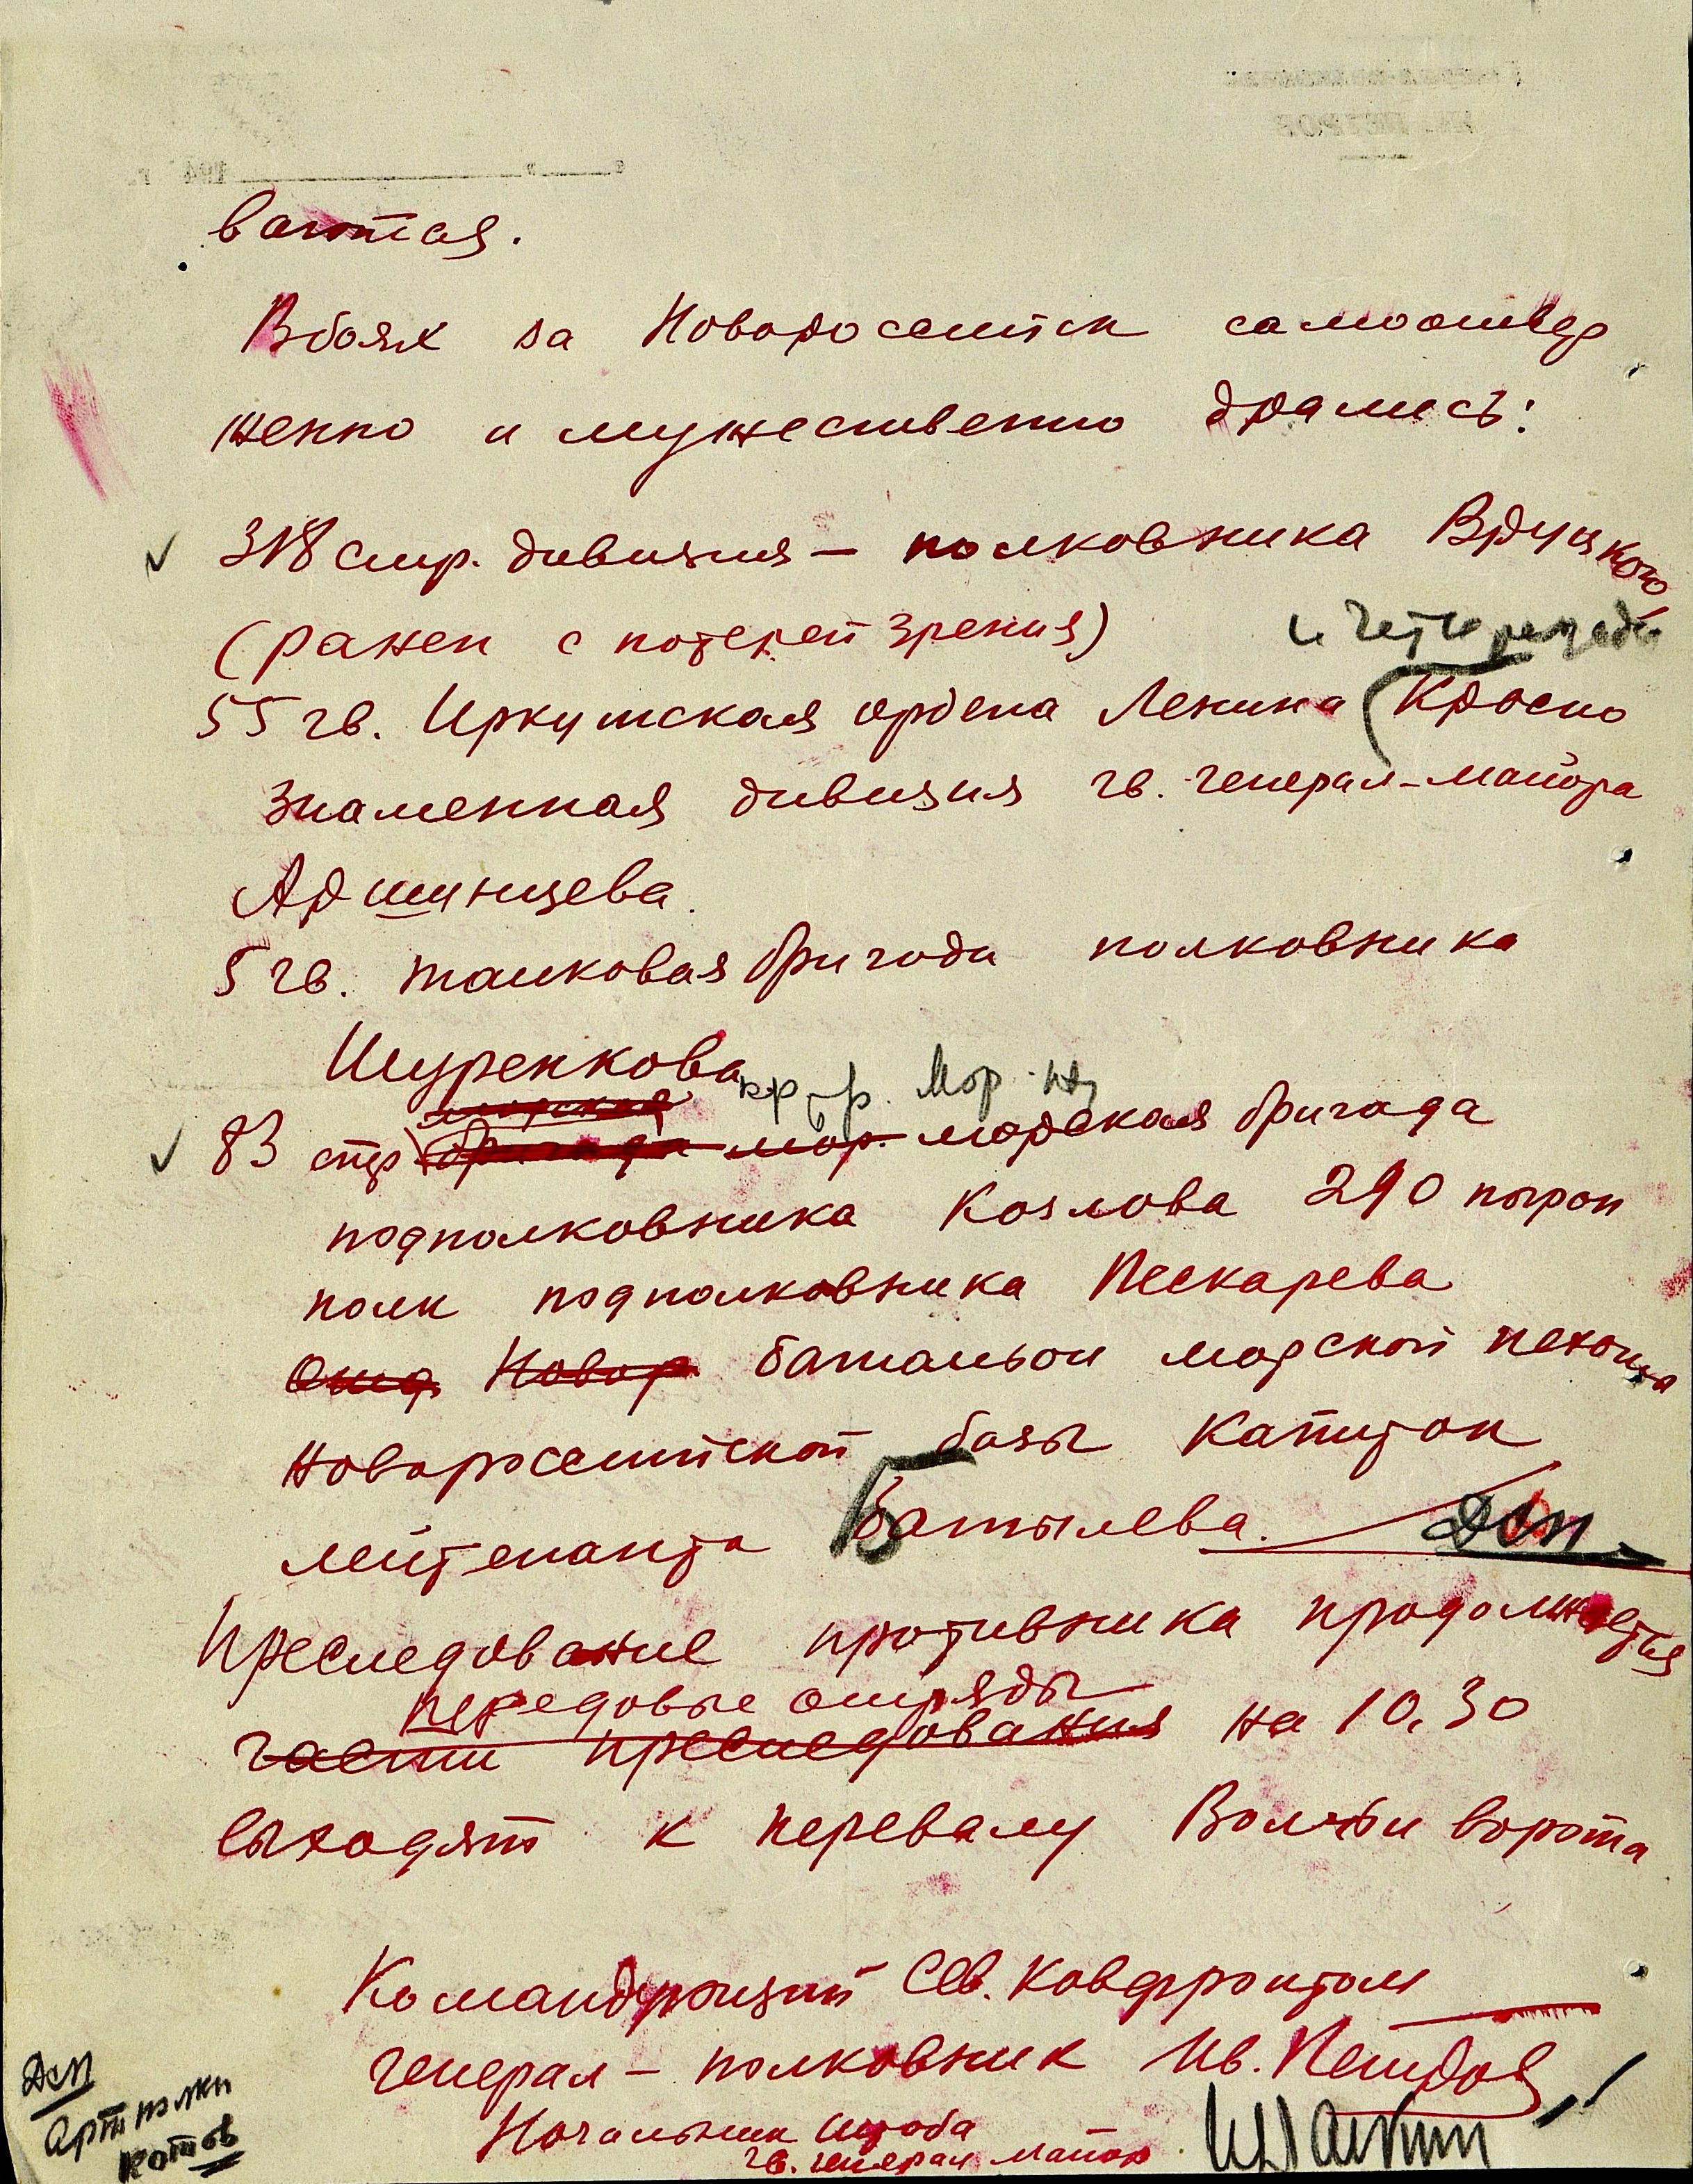 ваются.
В боях за Новороссийск самоотвер
женно и мужественно дрались:
318 стр. дивизия — полковника Врутского
(ранен с потерей зрения)
и четырежды
55 гв. Иркутская ордена Ленина (Красно
знаменная дивизия гв. генерал-майора
Аршинцева
5 гв. танковая бригада полковника
Шуренкова
кр стр. мор.
морская
83 стр бригада мор. морская бригада
подполковника Козлова 290 стр
полк подполковника Пескарева
Отд Новор батальон морской пехоты
Новороссийской базы капитан
лейтенанта Ботылева. Доп.
Преследование противника продолжается
передовые отряды
части преследования на 10.30
выходят к перевалу Волчьи ворота
Командующий Сев. Кавфронтом
генерал – полковник Ив. Петров
Начальник штаба
гв. генерал майор
Доп
Артполки
Котов